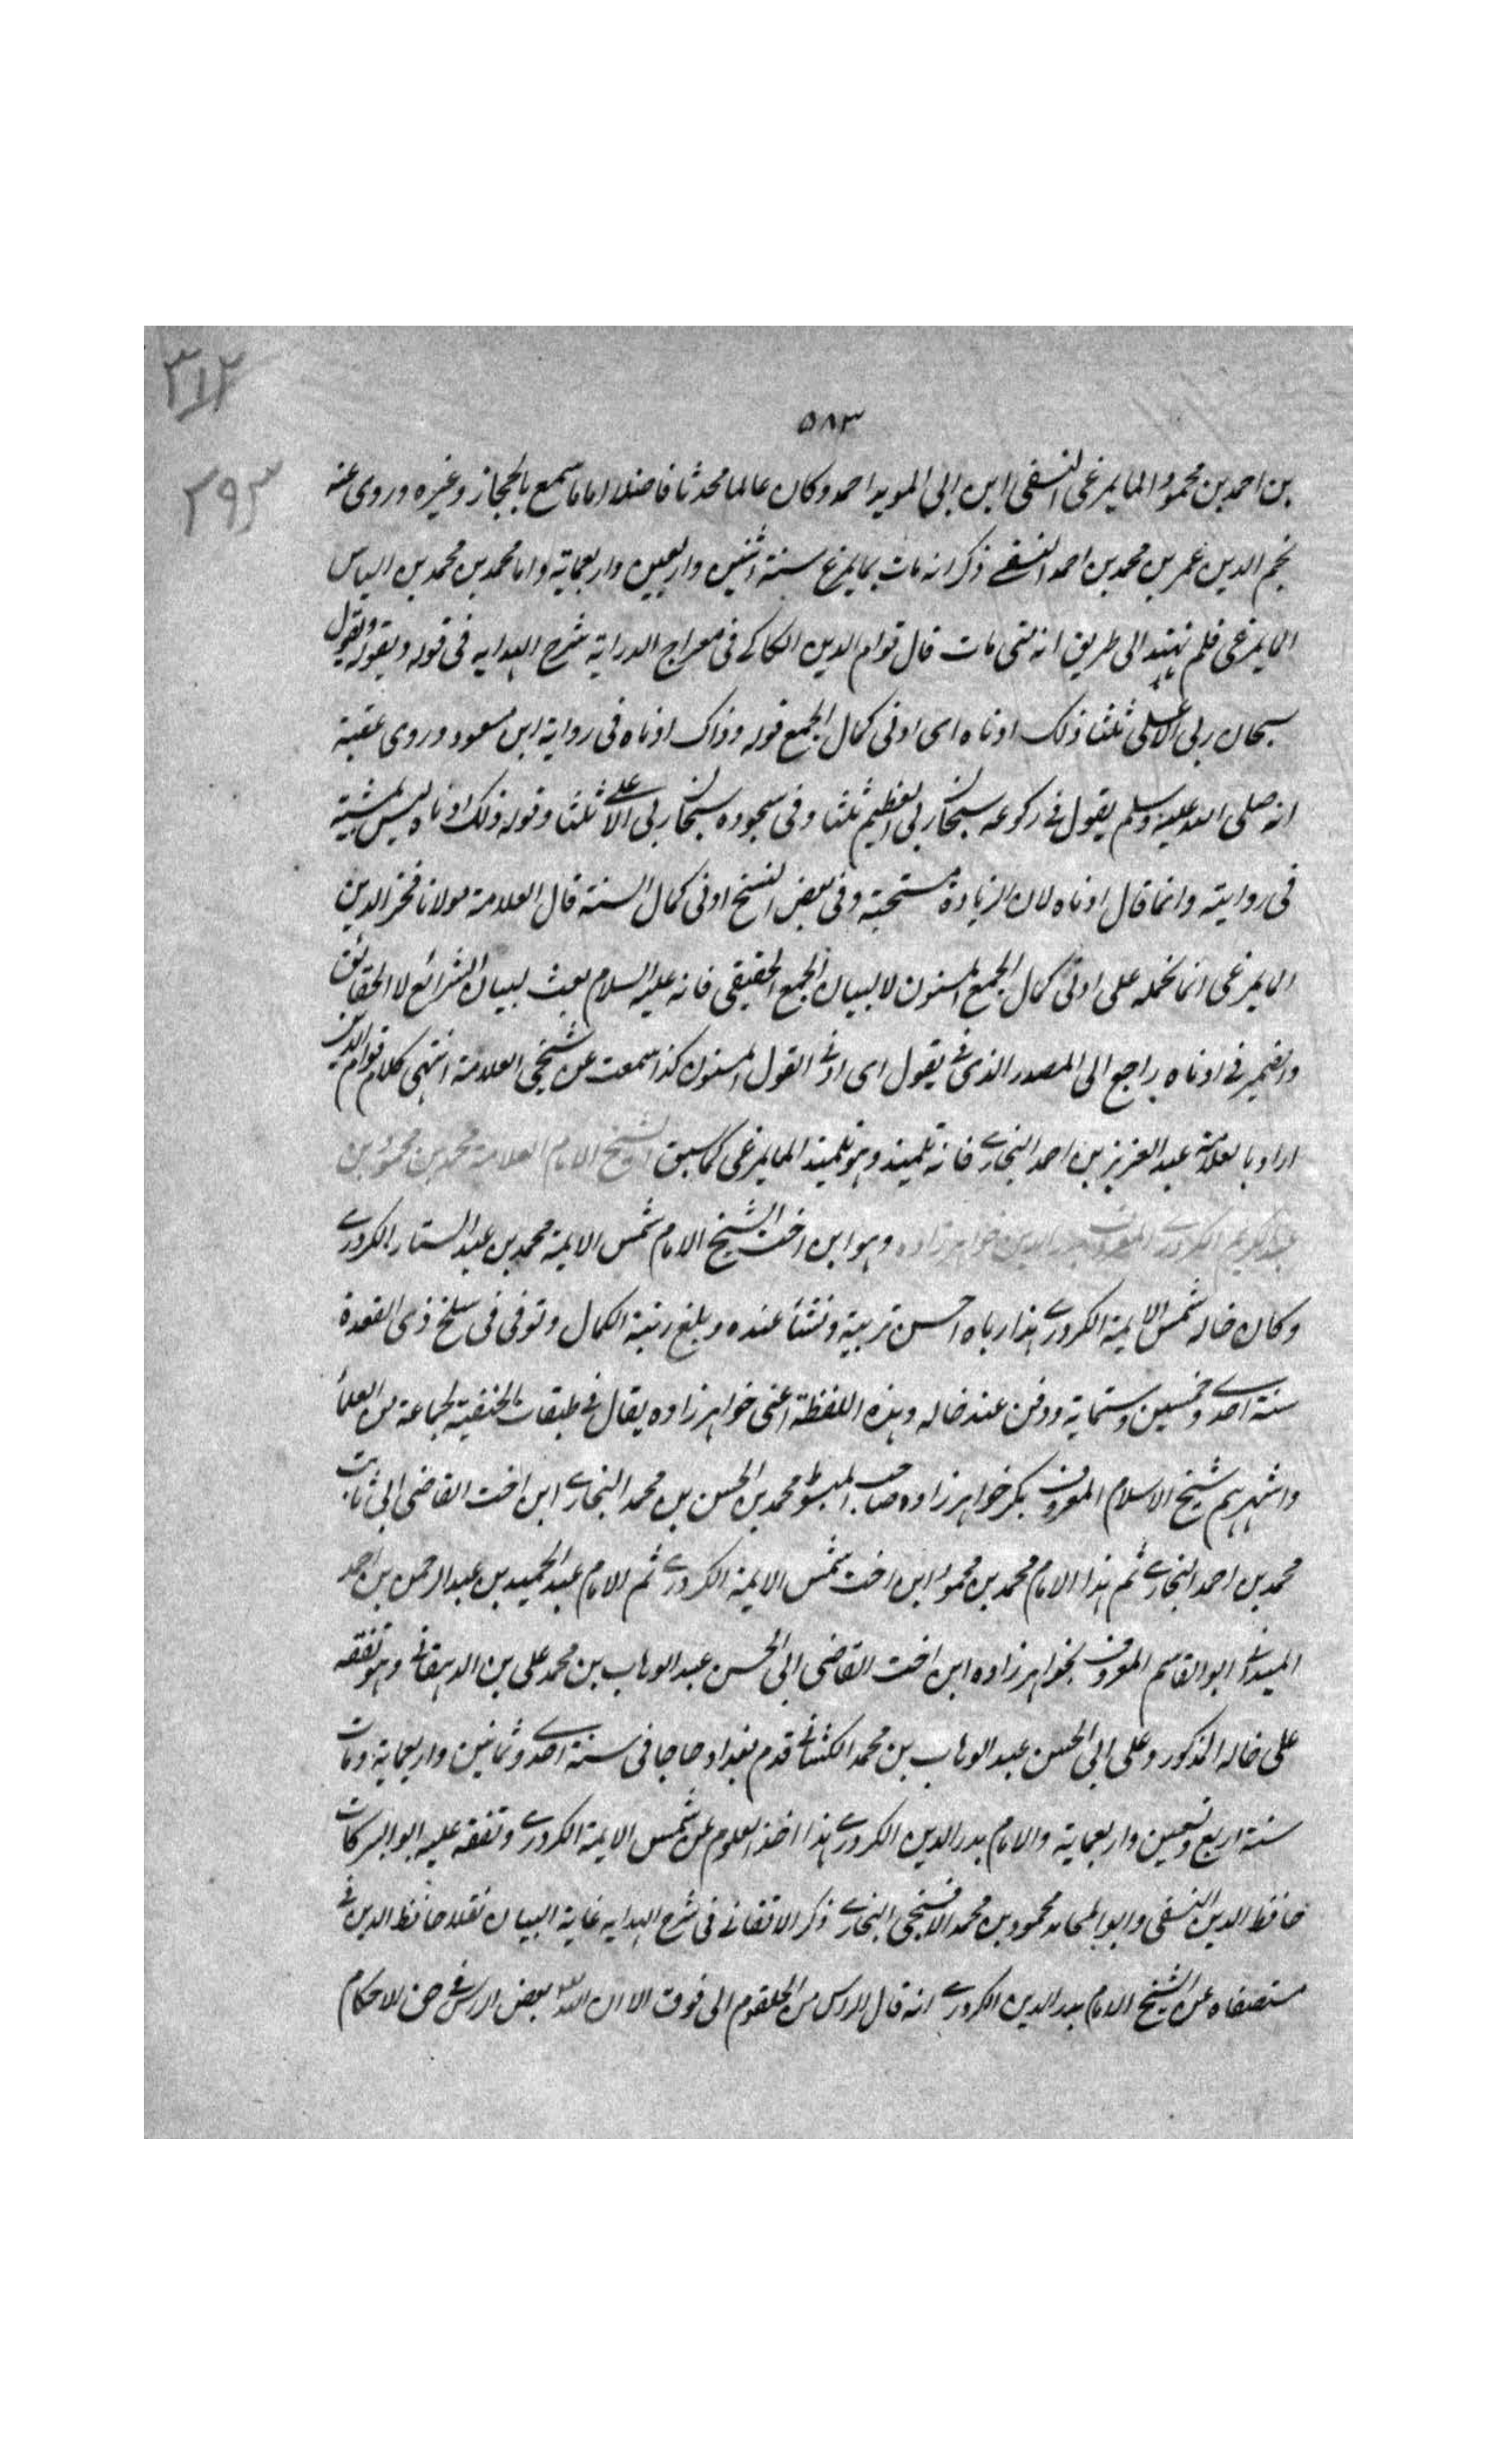 ٣١٢
٥٨٣
٢٩٣
بن احمد بن محمود المايمرغى النسفى ابن ابى المويد احمد وكان عالما محدثا فاضلا اماما سمع بالحجاز وغيره وروى عنه
نجم الدين عمر بن محمد بن احمد النسفے ذكر انه مات بمايمرغ سنة اثنين واربعين واربعماية واما محمد بن محمد بن الياس
المايمرغى فلم نهتد الى طريق انه متى مات قال قوام الدين الكاكے فى معراج الدراية شرح الهدايه فى قوله ويقول
سبحان ربى الاعلى ثلثا وذلك ادناه اى ادنى كمال الجمع قوله وذلك ادناه فى رواية ابن مسعود وروى عقبة
انه صلى الله عليه وسلم يقول فے ركوعه سبحان ربى العظيم ثلثا وفى سجوده سبحان ربى الاعلے ثلثا وقوله ذلك ادناه ليس
فى روايته وانما قال ادناه لان الزيادة مستحبة وفى بعض النسخ ادنى كمال السنة قال العلامة مولانا فخر الدين
المايمرغى انما نحمله على ادنى كمال الجمع المسنون لا لبيان الجمع الحقيقى فانه عليه السلام بعث لبيان الشرائع لا الحقائق
والضمير فے ادناه راجع الى المصدر الذى فے يقول اى ادنے القول المسنون كذا سمعت عن شيخى العلامة انتهى كلام قوام الدين
اراد بالعلامة عبد العزيز بن احمد البخارے فانه تلميذه وهو تلميذ المايمرغى كما سبق الشيخ الامام العلامة محمد بن محمود بن
عبد الكريم الكردرے المعروف ببدر الدين خواهرزاده وهو ابن اخت الشيخ الامام شمس الايمة محمد بن عبد الستار الكردرے
وكان خاله شمس الايمة الكردرے هذا رباه احسن تربية ونشأ عنده وبلغ رتبة الكمال وتوفى فى سلخ ذى القعدة
سنة احدے وخمسين وستماية ودفن عند خاله وهذه اللفظة اعنى خواهرزاده يقال فے طبقات الحنفية لجماعة من العلمأ
واشهرهم شيخ الاسلام المعروف بكر خواهرزاده صاحب المبسوط محمد بن الحسن بن محمد البخارے ابن اخت القاضى ابى ثابت
محمد بن احمد البخارے ثم هذا الامام محمد بن محمود ابن اخت شمس الايمة الكردرے ثم الامام عبد الحميد بن عبد الرحمن بن احمد
ابو القاسم المعروف بخواهرزاده ابن اخت القاضى ابى الحسن عبد الوهاب بن محمد على بن الدهقانے وهو تفقه
على خاله المذكور وعلى ابى الحسن عبد الوهاب بن محمد الكشانے قدم بغداد حاجا فى سنة احدے وثمانين واربعماية ومات
سنة اربع وتسعين واربعماية والامام بدر الدين الكردرے هذا اخذ العلوم عن شمس الايمة الكردرے وتفقه عليه ابو البركات
حافظ الدين النسفى وابو المحامد محمود بن محمد الافسنجى البخارے ذكر الاتقانے فى شرح الهدايه غاية البيان نقلا حافظ الدين فے
مستصفاه عن الشيخ الامام بدر الدين الكردرے انه قال الراس من الحلقوم الى فوق الا ان بعض الراس فے حق الاحكام